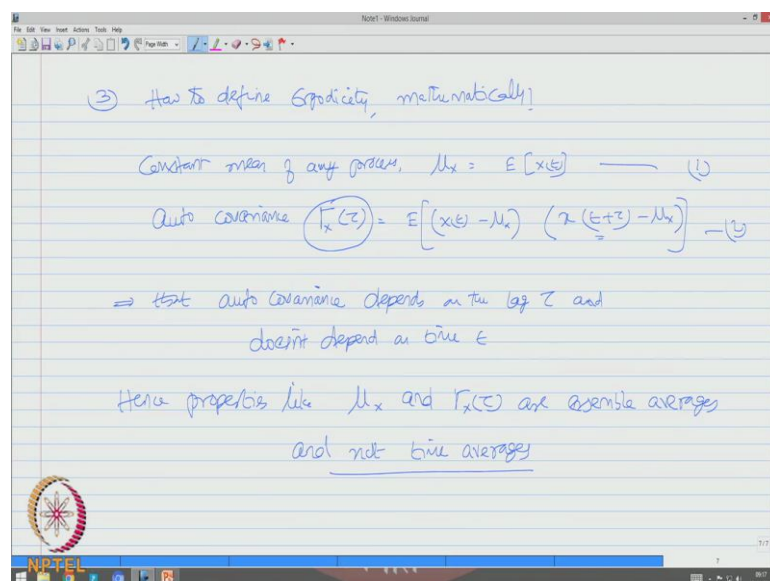 Note1 - Windows Journal
File Edit View Insert Actions Tools Help
Page Width
③ How to define Ergodicity, mathematically!
Constant mean of any process, μx = E[x(t)] —— (1)
Auto covariance rx(τ) = E[(x(t) - μx) (x(t+τ) - μx)] — (2)
⇒ auto covariance depends on the lag τ and
doesn't depend on time t
Hence properties like μx and rx(τ) are assemble averages
and not time averages
7/7
7
NPTEL
09:17